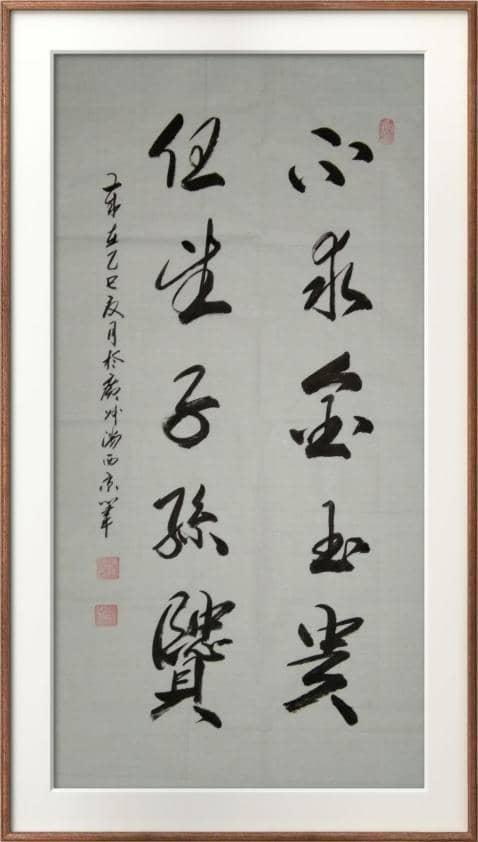 不求金玉贵
但望子孫賢
歲在乙巳夏月於廣州湯西京筆